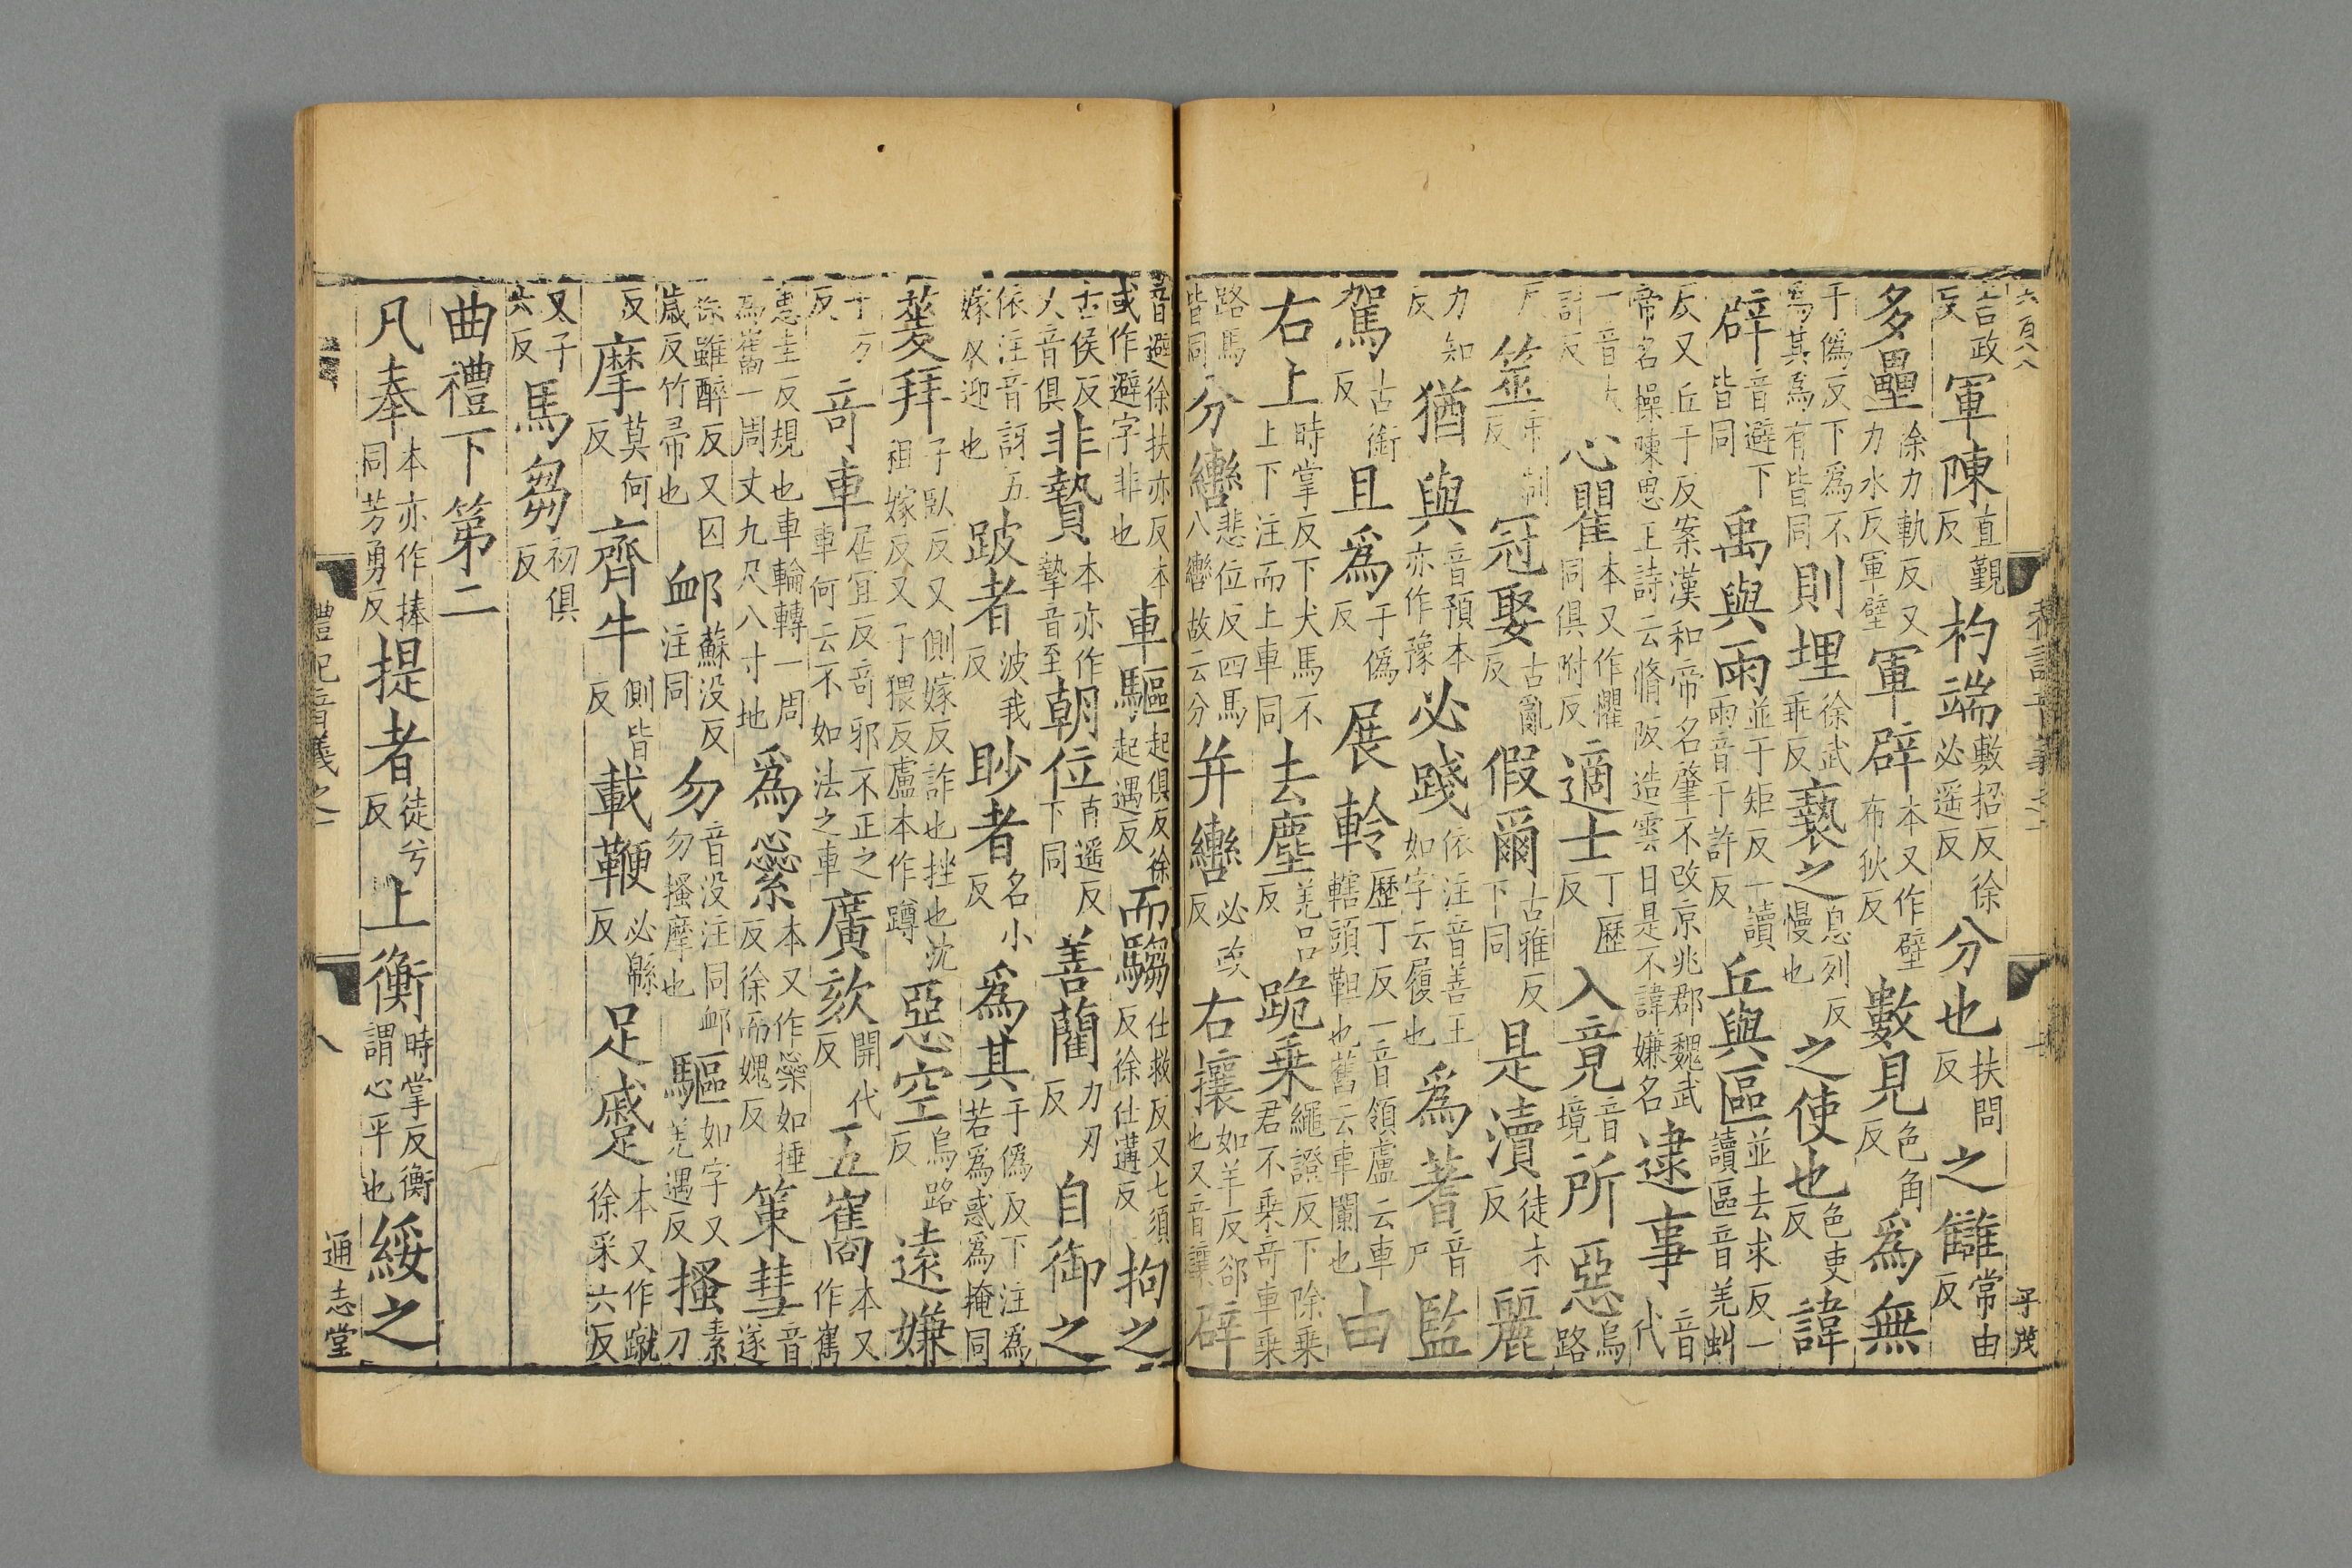 六百八八
言政反軍陳直覲反杓端敷招反徐必遥反分也扶問反之讎常由反
多壘徐力軌反又力水反軍壁軍辟本又作壁布狄反數見色角反爲無
于僞反下爲不爲其爲有皆同則埋徐武乖反褻之息列反慢也之使也色吏反諱
辟音避下皆同禹與雨並于矩反一讀雨音于許反丘與區並去求反一讀區音羌虯
反又丘于反案漢和帝名肇不改京兆郡魏武帝名操陳思王詩云脩阪造雲日是不諱嫌名逮事音代
一音計反心瞿本又作懼同俱附反適士丁歷反入竟音境所惡烏路
反筮市制反冠娶古亂反假爾古雅反下同是瀆徒木反麗
力知反猶與音預本亦作豫必踐依注音善王如字云履也爲蓍音尸監
駕古銜反且爲于僞反展軨歷丁反一音領盧云車轄頭靼也舊云車闌也由
右上時掌反下犬馬不上上下注而上車同去塵羌呂反跪乗繩證反下除乗君不乗竒車乗
路馬皆同分轡悲位反四馬八轡故云分并轡必政反右攘如羊反郤也又音讓辟
音避徐扶亦反本或作避字非也車驅起俱反徐起遇反而騶仕救反又七須反徐仕遘反拘之
古侯反又音俱非贄本亦作摯音至朝位直遥反下同善藺力刃反自御之
依注音訝五嫁反迎也跛者波我反眇者名小反爲其于僞反下注爲若爲惑爲掩同
蓌拜子臥反又側嫁反詐也挫也沈祖嫁反又子猥反盧本作蹲惡空烏路反遠嫌
于万反竒車居宜反竒邪不正之車何云不如法之車廣欬開代反五巂本又作嶲
惠圭反規也車輪轉一周爲巂一周丈九尺八寸地爲繠本又作橤如捶反徐而媿反策彗音遂
徐雖醉反又囚歲反竹帚也卹蘇没反注同勿音没注同卹勿搔摩也驅如字又羌遇反搔素刀
反摩莫何反齊牛側皆反載鞭必緜反足蹙本又作蹴徐采六反
又子六反馬芻初俱反
曲禮下第二
凡奉本亦作捧同芳勇反提者徒兮反上衡時掌反衡謂心平也綏之
禮記音義之一 八 通志堂